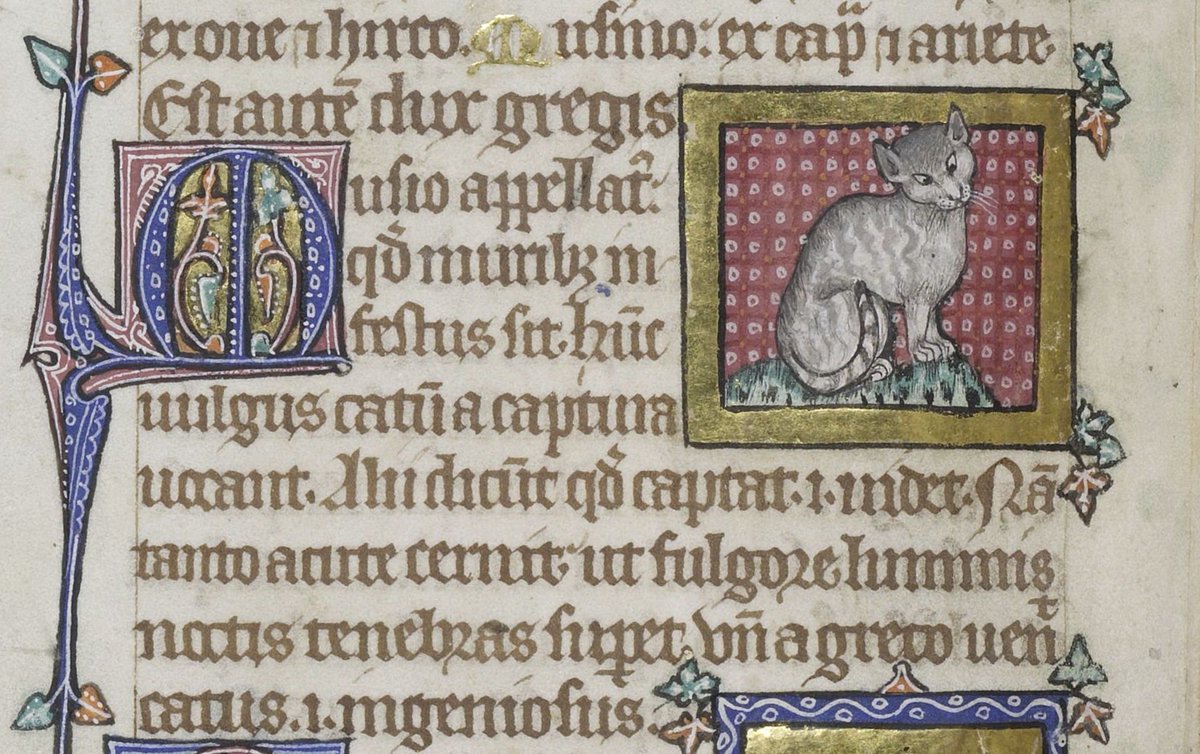 ex oue ⁊ hirco. Musino: ex cap̃ ⁊ ariete
Est autẽ dux gregis
Musio appellat̃:
qđ muribꝫ in-
festus sit. hũc
uulgus catũ a captura
uocant. Alii dicũt qđ captat .i. uidet. Nã
tanto acute cernit, ut fulgore luminis
noctis tenebras suꝑet. Vñ a greco uenͭ
catus .i. ingeniosus.